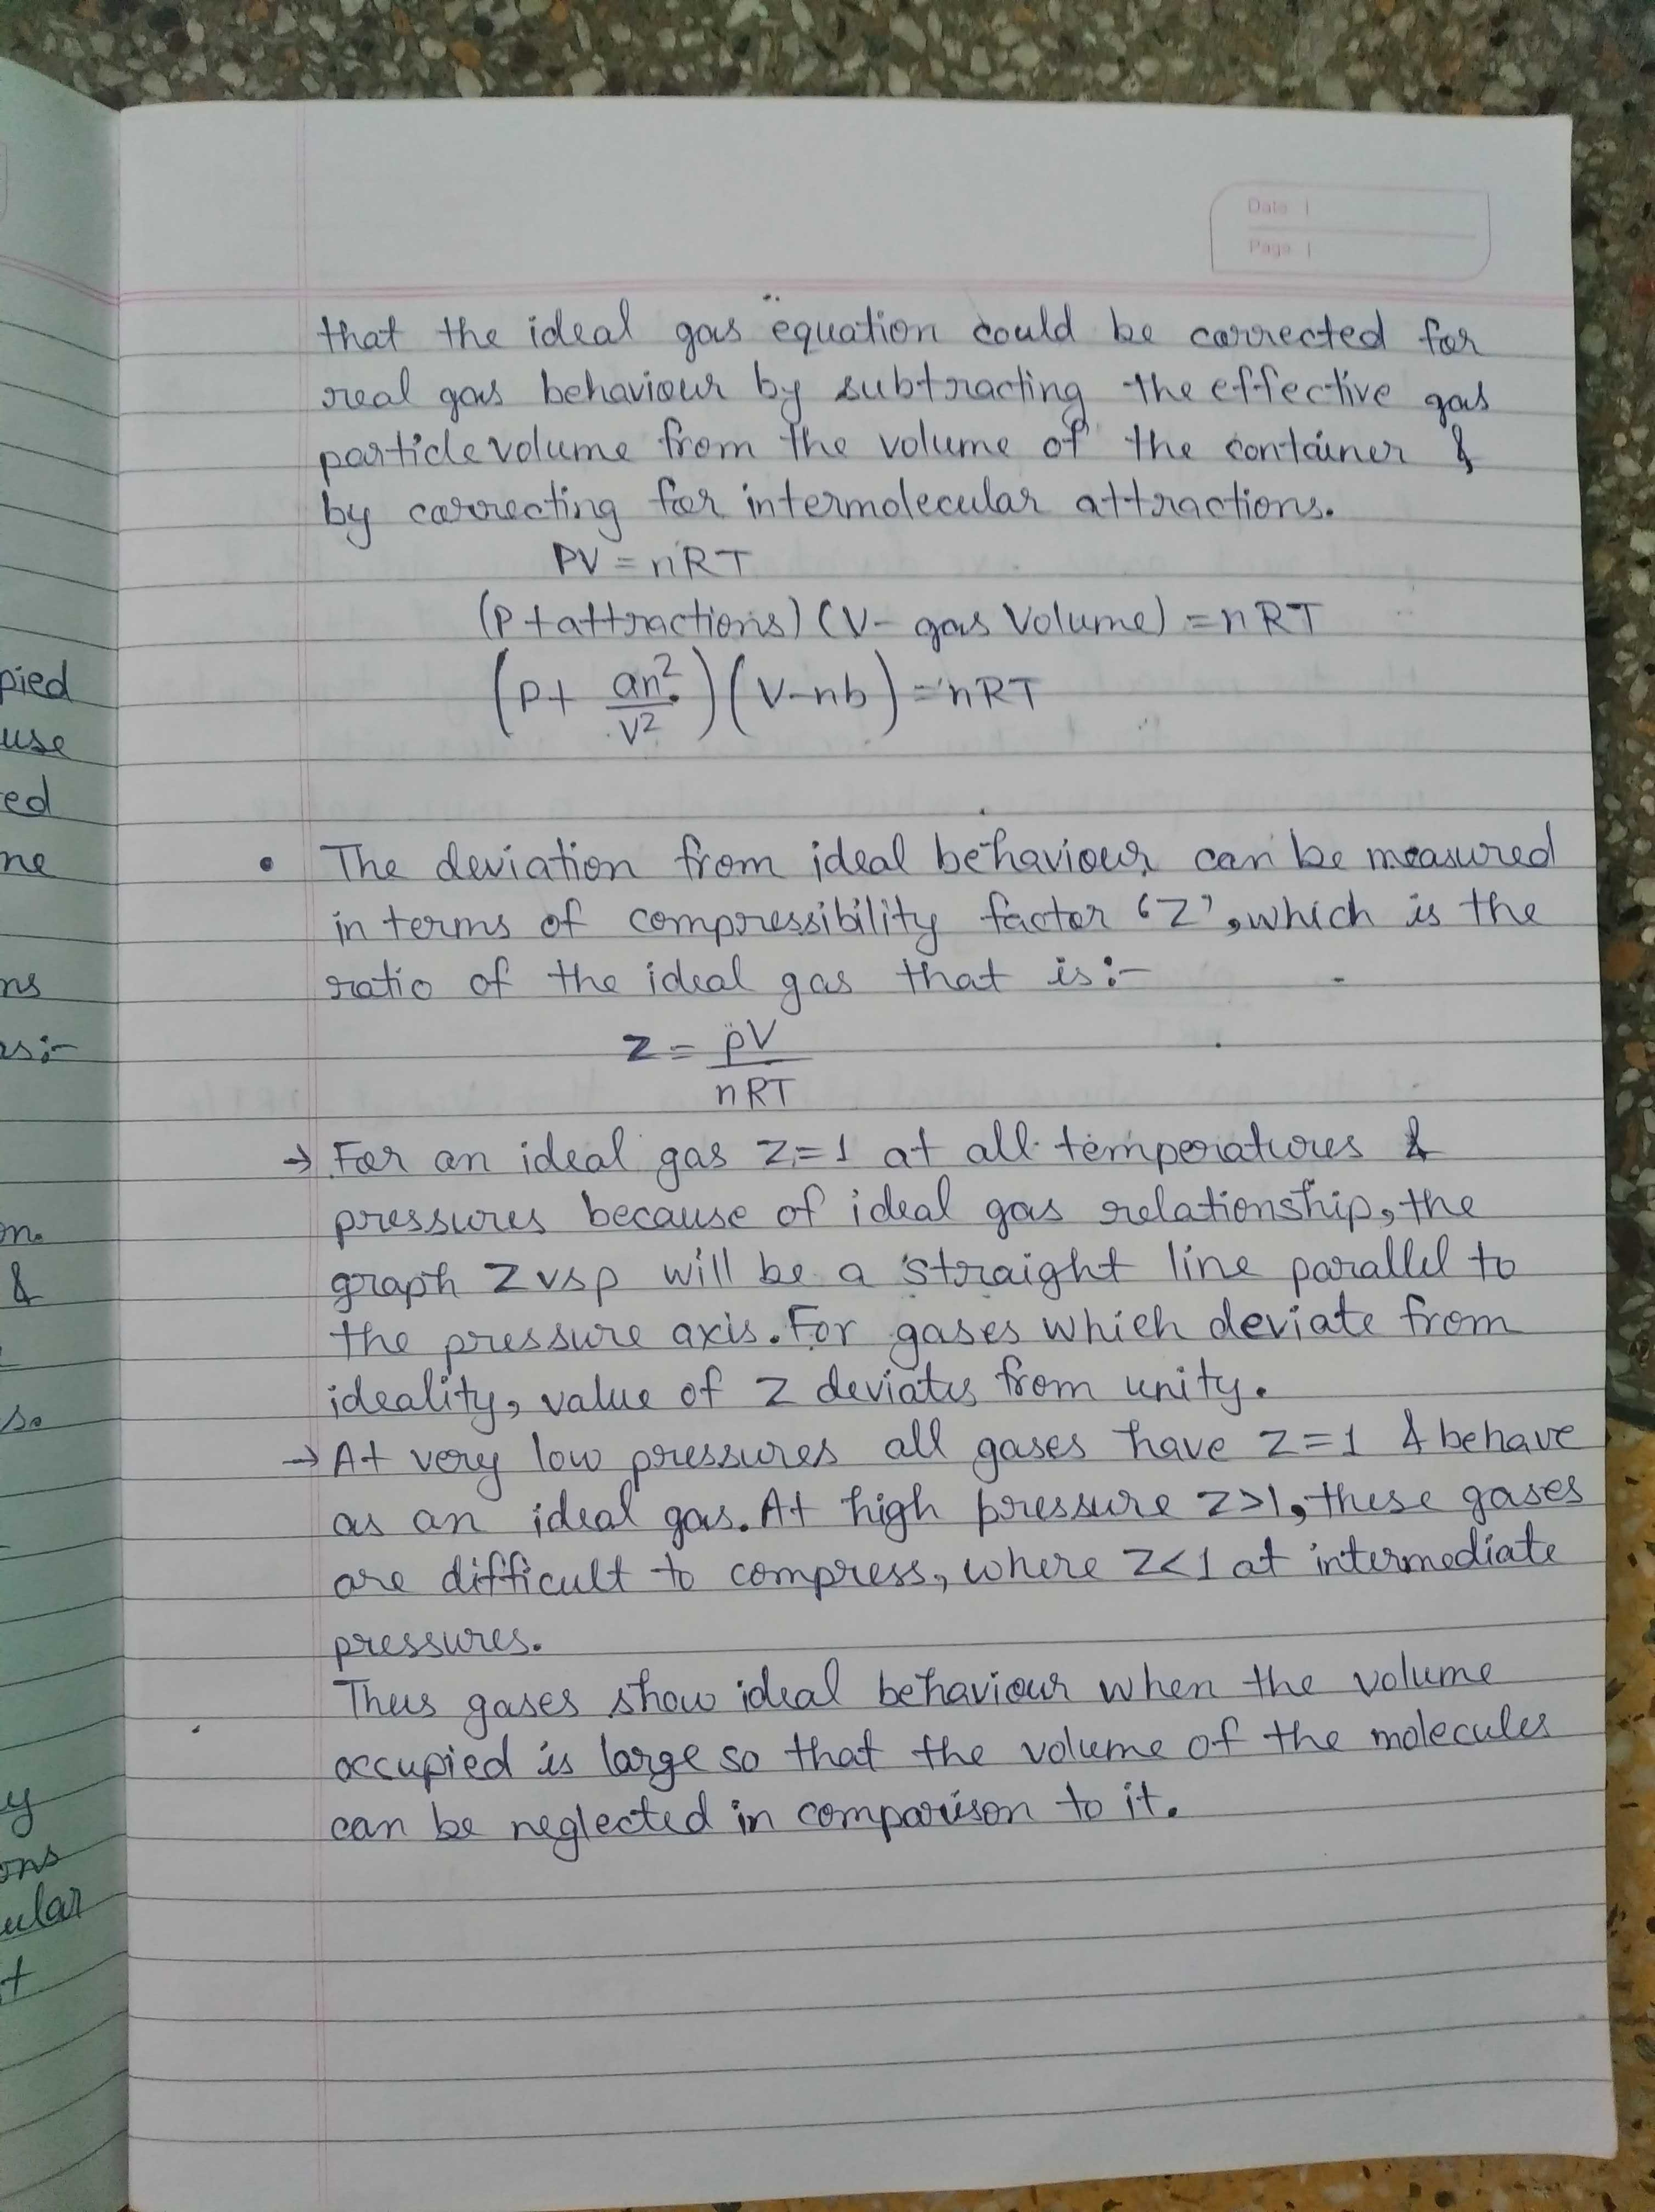 Date
Page
that the ideal gas equation could be corrected for
real gas behaviour by subtracting the effective gas
particle volume from the volume of the container &
by correcting for intermolecular attractions.
PV = nRT
(P + attractions) (V - gas Volume) = nRT
(P + an²/V²) (V-nb) = nRT
• The deviation from ideal behaviour can be measured
in terms of compressibility factor 'Z', which is the
ratio of the ideal gas that is:-
Z = pV/nRT
→ For an ideal gas Z=1 at all temperatures &
pressures because of ideal gas relationship, the
graph Z vs p will be a straight line parallel to
the pressure axis. For gases which deviate from
ideality, value of Z deviates from unity.
→ At very low pressures all gases have Z=1 & behave
as an ideal gas. At high pressure Z>1, these gases
are difficult to compress, where Z<1 at intermediate
pressures.
Thus gases show ideal behaviour when the volume
occupied is large so that the volume of the molecules
can be neglected in comparison to it.
pied
use
ed
ne
ns
as:-
on.
&
so
y
ons
ular
t